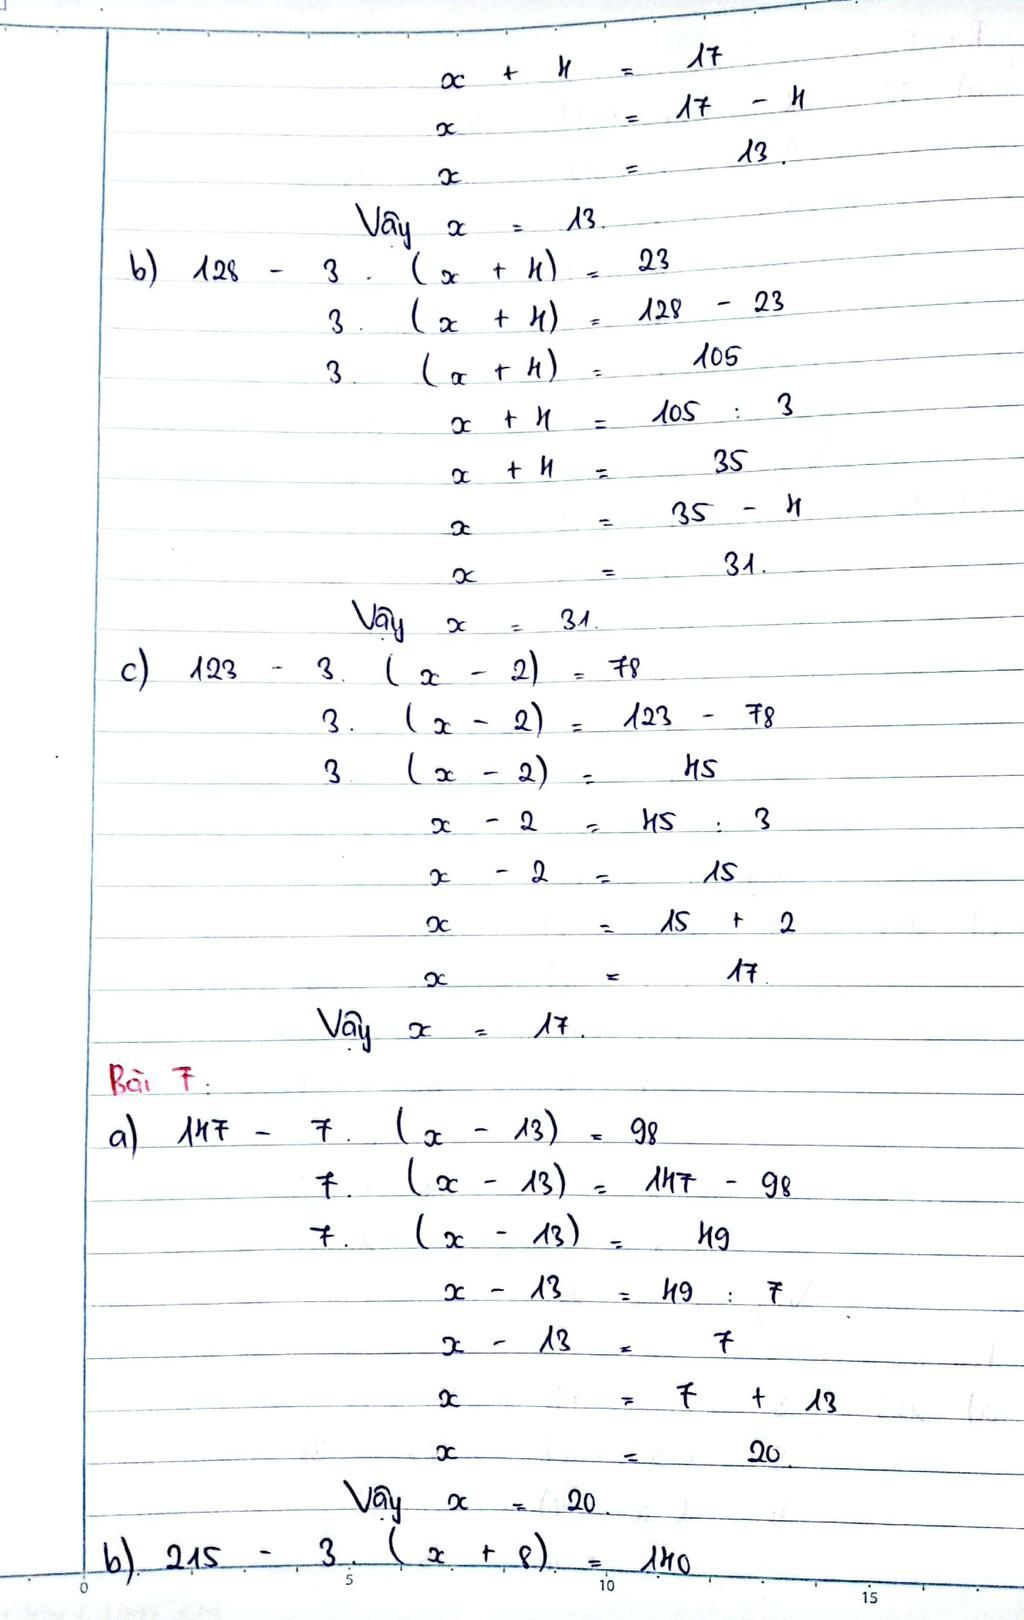 x + 4 = 17
x = 17 - 4
x = 13.
Vậy x = 13.
b) 128 - 3 . (x + 4) = 23
3 . (x + 4) = 128 - 23
3 (x + 4) = 105
x + 4 = 105 : 3
x + 4 = 35
x = 35 - 4
x = 31.
Vậy x = 31.
c) 123 - 3. (x - 2) = 78
3. (x - 2) = 123 - 78
3 (x - 2) = 45
x - 2 = 45 : 3
x - 2 = 15
x = 15 + 2
x = 17.
Vậy x = 17.
Bài 7:
a) 147 - 7. (x - 13) = 98
7. (x - 13) = 147 - 98
7. (x - 13) = 49
x - 13 = 49 : 7
x - 13 = 7
x = 7 + 13
x = 20.
Vậy x = 20.
b) 215 - 3. (x + 8) = 140
0 5 10 15